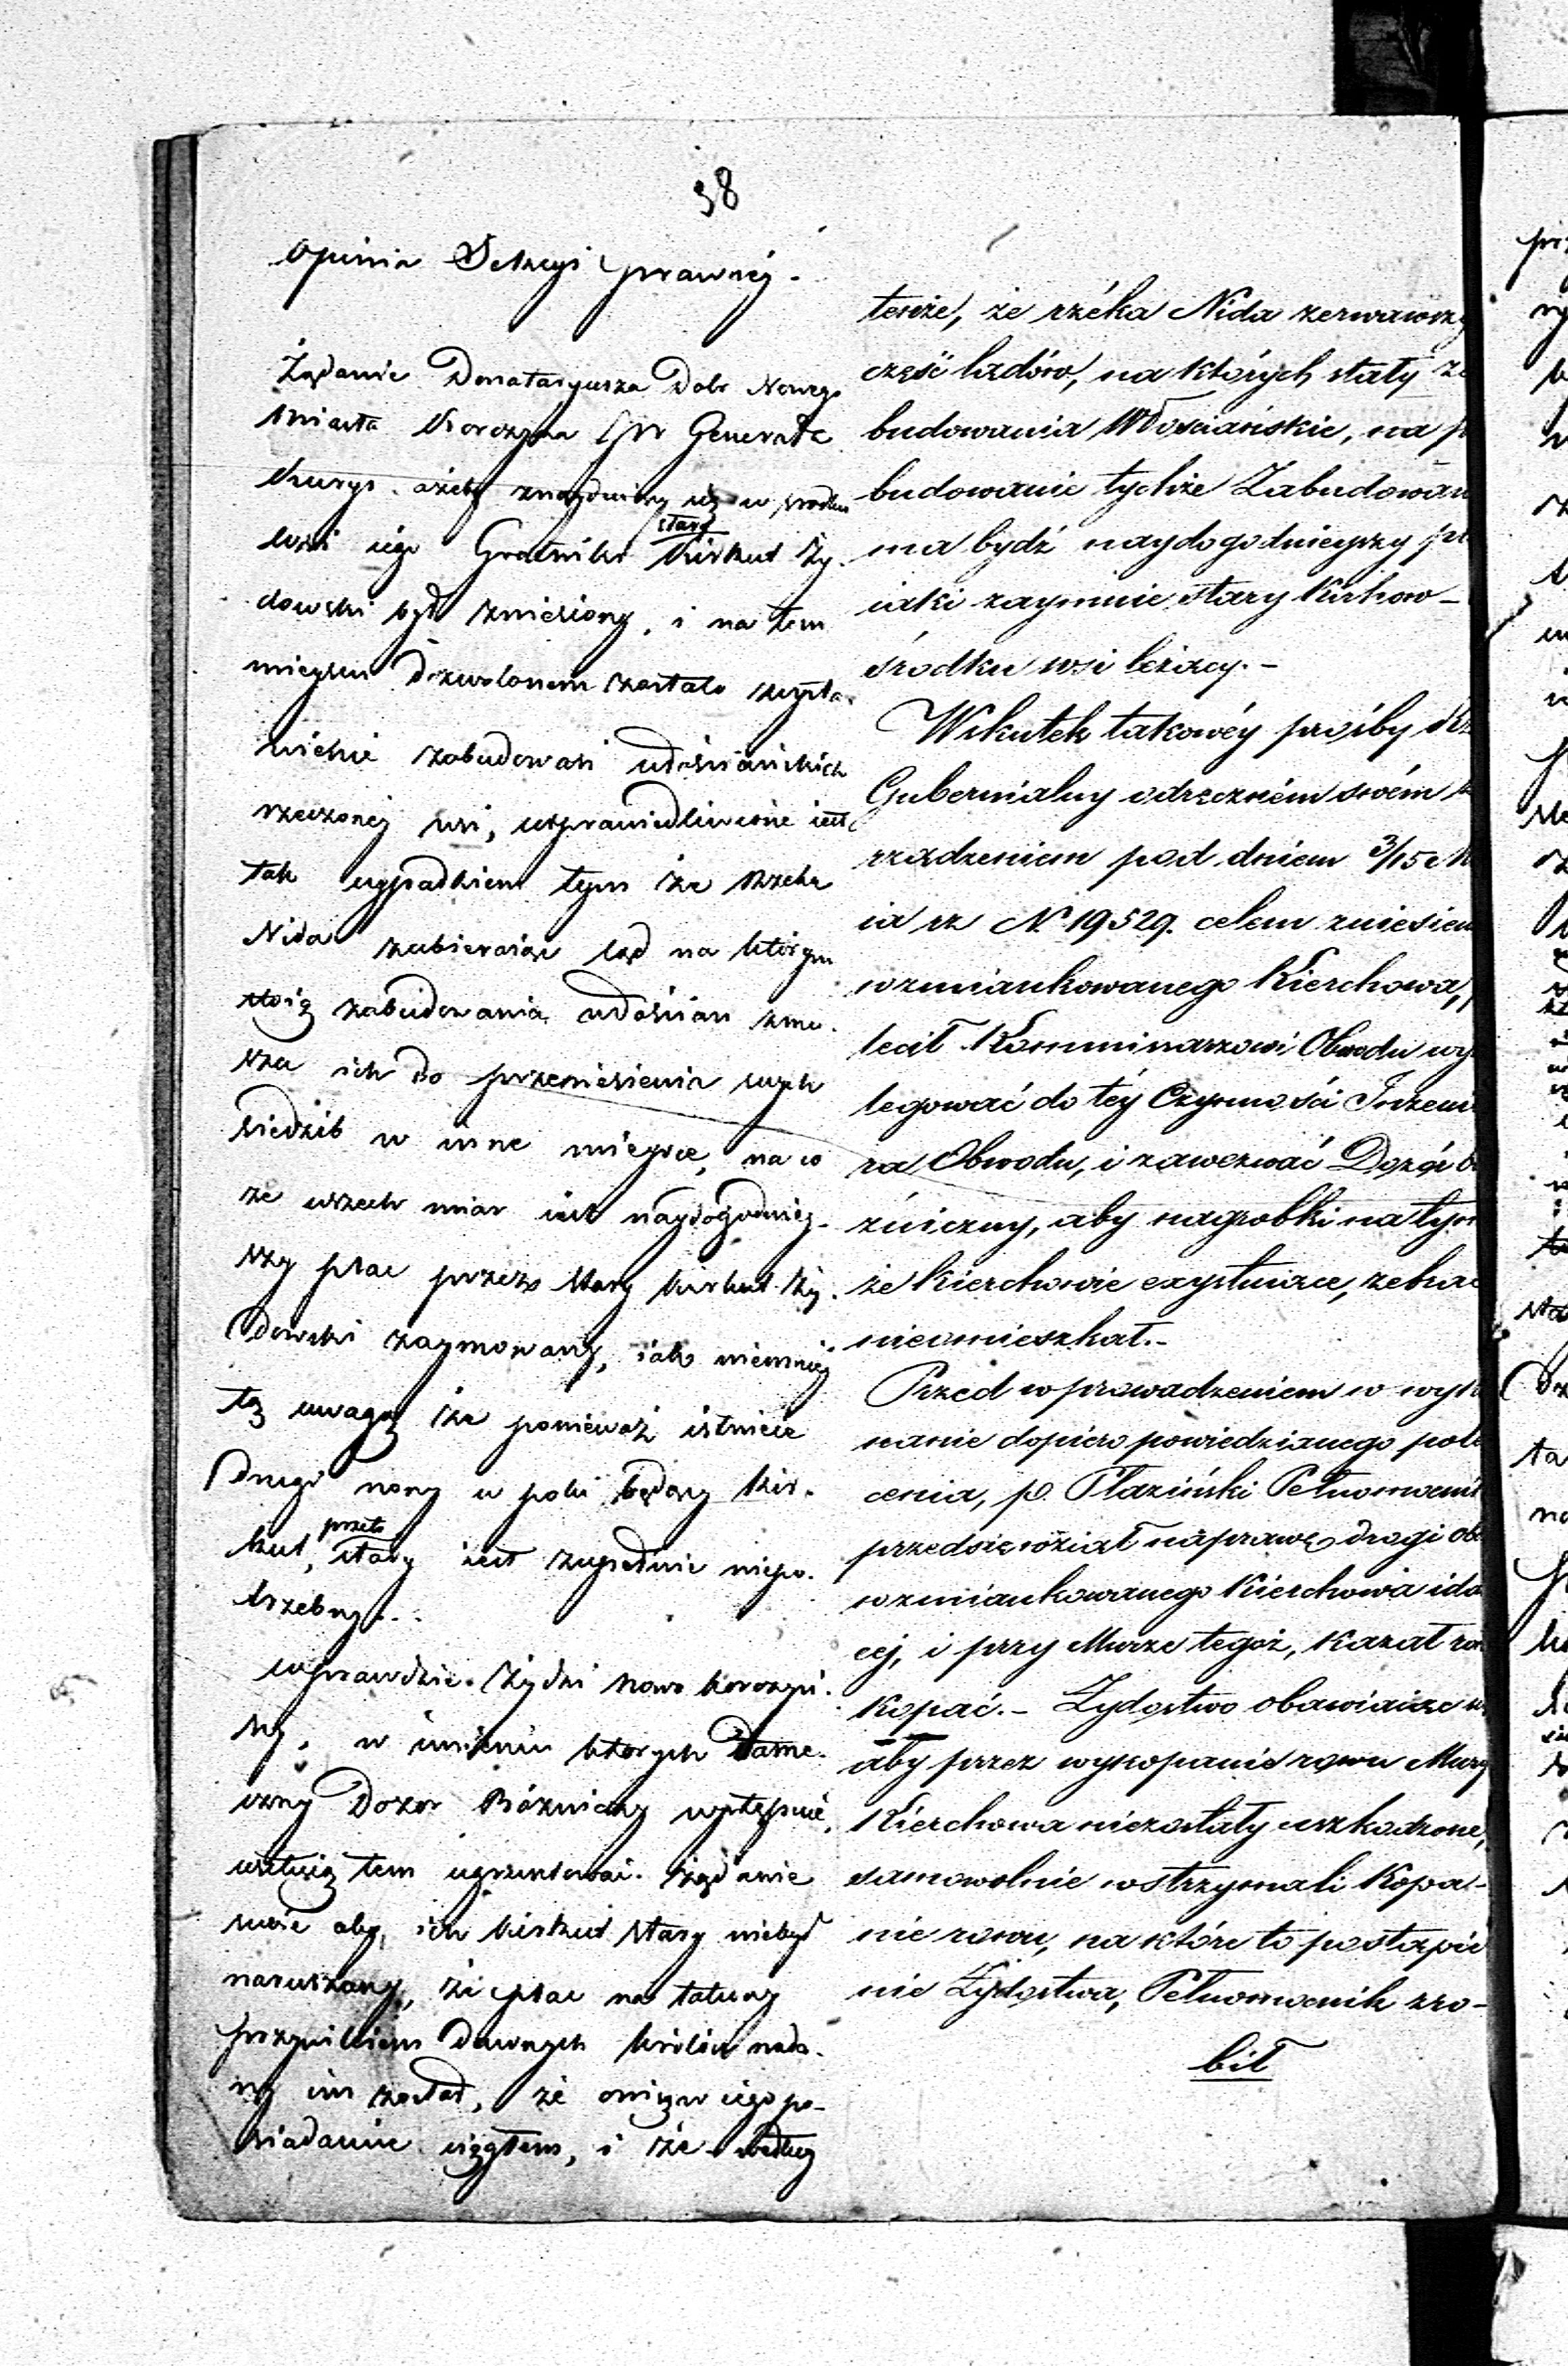 38
Opinia Sekcyi prawnéj.
Żądanie Donataryusza Dobr Nowego
Miasta Korczyna Generała
ażeby znayduiący się w środku
wsi iego Grotniki stary Kirkut Ży-
dowski był zniesiony, i na tem
mieyscu dozwolonem zostało wysta-
wienie zabudowań włościańskich
rzeczonej wsi, usprawiedliwione iest
tak wypadkiem tym że Rzeka
Nida zabieraiąc ląd na którym
stoią zabudowania włościan zmu-
sza ich do przeniesienia swych
siedzib w inne mieysce, na co
ze wszech miar iest naydogodniey-
szy plac przez stary kirkut Ży-
dowski zaymowany, iako niemniéj
tą uwagą że ponieważ istnieie
drugi nowy w polu będący kir-
kut, przeto stary iest zupełnie niepo-
trzebny.
Wprawdzie Żydzi Nowo Korczyń-
scy, w imieniu których tame-
czny Dozor Bóżniczy występuie,
usiłuią tem ugruntować żądanie
swoie aby ich kirkut stary niebył
naruszany, że plac na takowy
przywileiem dawnych królów nada-
ny im został, że onią w iego po-
siadaniu ciągłem, i że według
tenże, że rzéka Nida zerwawszy
część lądów, na których stały za
budowania Włościańskie, na p
budowanie tychże Zabudowań
ma bydź naydogodnieyszy pl
iaki zaymuie stary Kirkow-
środku wsi leżący.-
Wskutek takowéy prośby Rz
Gubernialny odręczném swoém
rządzeniem pod dniem 3/15
ia rz N. 19529. celem zniesien
wzmiankowanego Kierchowa,
lecił Kommissarzowi Obwodu wy
legować do téy Czynności Jnżenie
ra Obwodu, i zawezwać Dozór bó
żniczny, aby nagrobki na tym
że Kierchowie exystuiące, zebrać
nieomieszkał.-
Przed wprowadzeniem w wyk
nanie dopiero powiedzianego pole
cenia, p. Płaziński Pełnomocnik
przedsięwziął naprawę drogi obo
wzmiankowanego Kierchowa idą
cej, i przy Murze tegoż, kazał row
kopać.- Żydostwo obawiaiąc się
aby przez wykopanie rowu Mury
Kierchowa niezostały uszkodzone,
samowolnie wstrzymali Kopa-
nie rowu, na które to postąpie
nie Żydostwa, Pełnomocnik zro-
bił